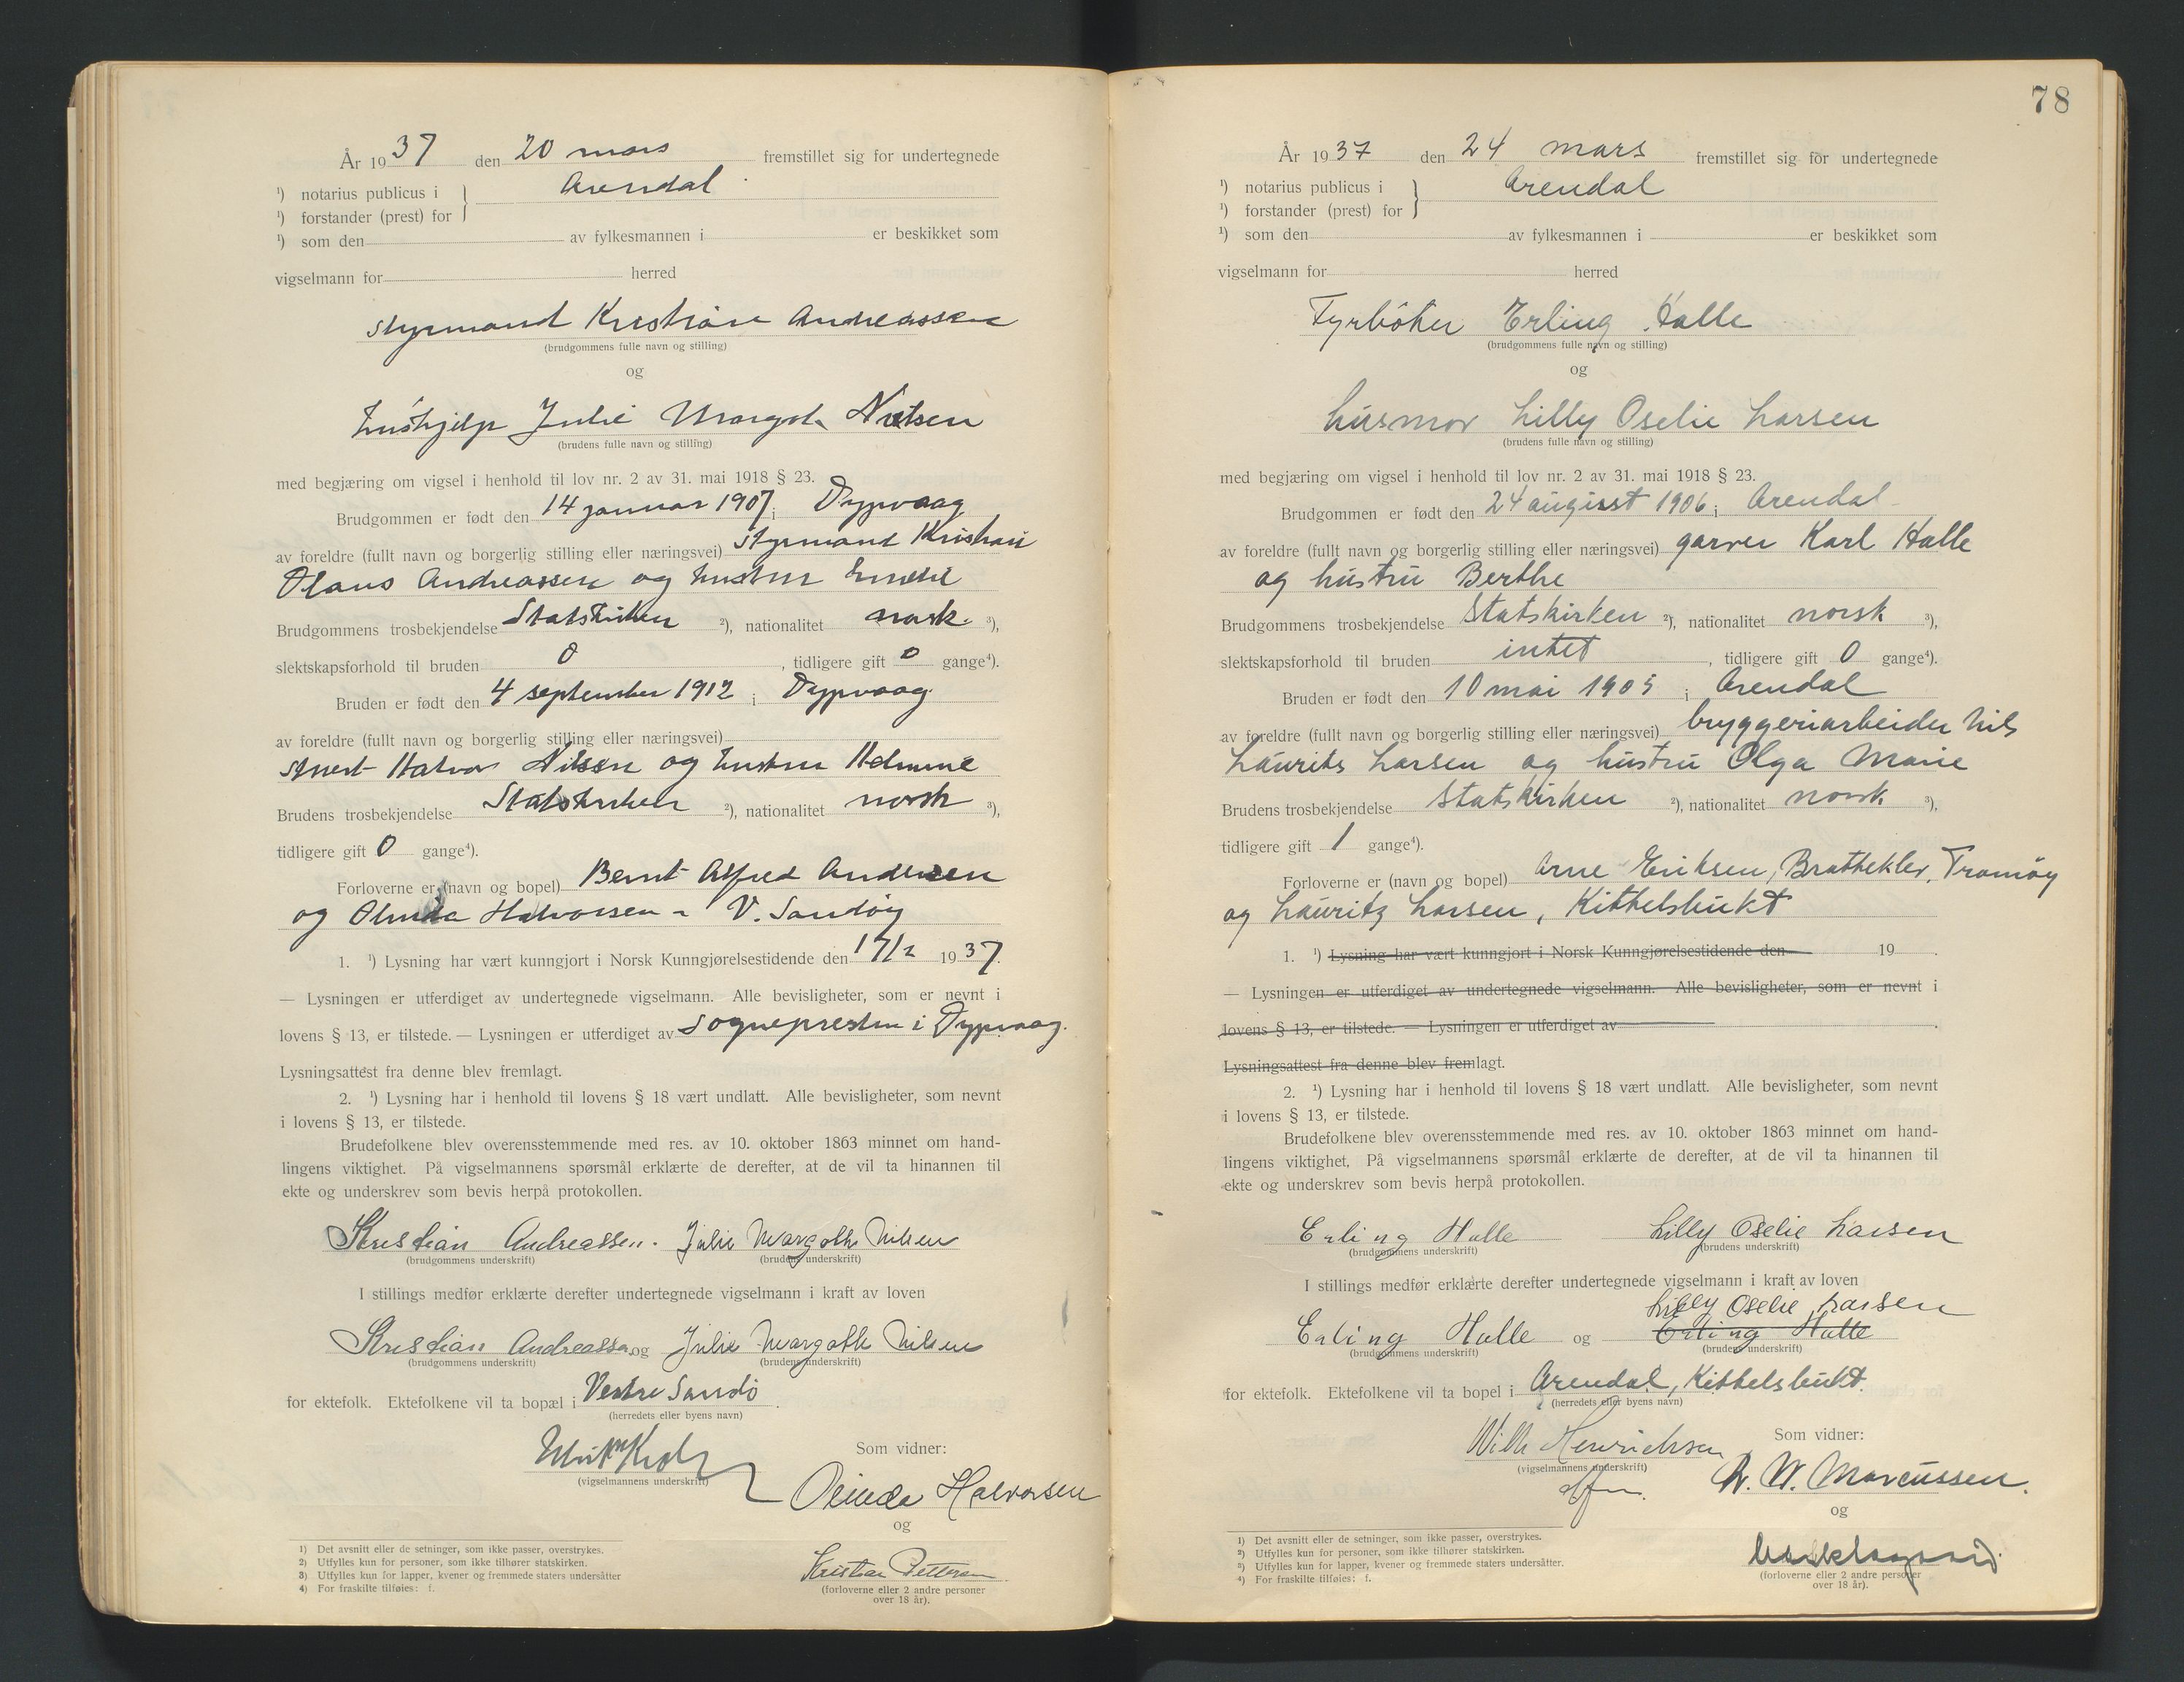 År 1937 den 20 mars fremstillet sig for undertegnede
¹) notarius publicus i } Arendal
¹) forstander (prest) for
¹) som den av fylkesmannen i er beskikket som
vigselmann for herred
styrmand Kristian Andreassen
(brudgommens fulle navn og stilling)
og
hushjelp Julie Margoth Nilsen
(brudens fulle navn og stilling)
med begjæring om vigsel i henhold til lov nr. 2 av 31. mai 1918 § 23.
Brudgommen er født den 14 januar 1907 i Dypvaag
av foreldre (fullt navn og borgerlig stilling eller næringsvei) styrmand Kristian
Olaus Andreassen og hustru
Brudgommens trosbekjendelse Statskirken ²), nationalitet norsk ³),
slektskapsforhold til bruden 0 , tidligere gift 0 gange⁴).
Bruden er født den 4 september 1912 i Dypvaag
av foreldre (fullt navn og borgerlig stilling eller næringsvei)
Halvor Nilsen og hustru
Brudens trosbekjendelse Statskirken ²), nationalitet norsk ³),
tidligere gift 0 gange⁴).
Forloverne er (navn og bopel) Bernt Alfred Andersen
og Halvorsen - V. Sandøy
1. ¹) Lysning har vært kunngjort i Norsk Kunngjørelsestidende den 17/2 1937.
— Lysningen er utferdiget av undertegnede vigselmann. Alle bevisligheter, som er nevnt i
lovens § 13, er tilstede. — Lysningen er utferdiget av Sognepresten i Dypvaag.
Lysningsattest fra denne blev fremlagt.
2. ¹) Lysning har i henhold til lovens § 18 vært undlatt. Alle bevisligheter, som nevnt
i lovens § 13, er tilstede.
Brudefolkene blev overensstemmende med res. av 10. oktober 1863 minnet om hand-
lingens viktighet. På vigselmannens spørsmål erklærte de derefter, at de vil ta hinannen til
ekte og underskrev som bevis herpå protokollen.
Kristian Andreassen. Julie Margothe Nilsen
(brudgommens underskrift) (brudens underskrift)
I stillings medfør erklærte derefter undertegnede vigselmann i kraft av loven
Kristian Andreassen og Julie Margothe Nilsen
(brudgommens underskrift) (brudens underskrift)
for ektefolk. Ektefolkene vil ta bopæl i Vestre Sandö.
(herredets eller byens navn)
Som vidner:
(vigselmannens underskrift)
Halvorsen
og
Kristian Pettersen
(forloverne eller 2 andre personer
over 18 år).
1) Det avsnitt eller de setninger, som ikke passer, overstrykes.
2) Utfylles kun for personer, som ikke tilhører statskirken.
3) Utfylles kun for lapper, kvener og fremmede staters undersåtter
4) For fraskilte tilføies: f.
78
År 1937 den 24 mars fremstillet sig for undertegnede
¹) notarius publicus i } Arendal
¹) forstander (prest) for
¹) som den av fylkesmannen i er beskikket som
vigselmann for herred
Fyrböter Erling Halle
(brudgommens fulle navn og stilling)
og
husmor Lilly Oselie Larsen
(brudens fulle navn og stilling)
med begjæring om vigsel i henhold til lov nr. 2 av 31. mai 1918 § 23.
Brudgommen er født den 24 august 1906 i Arendal
av foreldre (fullt navn og borgerlig stilling eller næringsvei) garver Karl Halle
og hustru Berthe
Brudgommens trosbekjendelse Statskirken ²), nationalitet norsk ³),
slektskapsforhold til bruden intet , tidligere gift 0 gange⁴).
Bruden er født den 10 mai 1905 i Arendal
av foreldre (fullt navn og borgerlig stilling eller næringsvei) bryggeriarbeider Nils
Laurits Larsen og hustru Olga Marie
Brudens trosbekjendelse Statskirken ²), nationalitet norsk ³),
tidligere gift 1 gange⁴).
Forloverne er (navn og bopel) Arne Eriksen, Brattekler, Tromöy
og Lauritz Larsen, Kittelsbukt
1. ¹) Lysning har vært kunngjort i Norsk Kunngjørelsestidende den 19 .
— Lysningen er utferdiget av undertegnede vigselmann. Alle bevisligheter, som er nevnt i
lovens § 13, er tilstede. — Lysningen er utferdiget av .
Lysningsattest fra denne blev fremlagt.
2. ¹) Lysning har i henhold til lovens § 18 vært undlatt. Alle bevisligheter, som nevnt
i lovens § 13, er tilstede.
Brudefolkene blev overensstemmende med res. av 10. oktober 1863 minnet om hand-
lingens viktighet. På vigselmannens spørsmål erklærte de derefter, at de vil ta hinannen til
ekte og underskrev som bevis herpå protokollen.
Erling Halle Lilly Oselie Larsen
(brudgommens underskrift) (brudens underskrift)
I stillings medfør erklærte derefter undertegnede vigselmann i kraft av loven
Lilly Oselie Larsen
Erling Halle og Erling Halle
(brudgommens underskrift) (brudens underskrift)
for ektefolk. Ektefolkene vil ta bopel i Arendal, Kittelsbukt.
(herredets eller byens navn)
Som vidner:
Wilh Henrichsen
(vigselmannens underskrift)
W. Marcussen.
og
(forloverne eller 2 andre personer
over 18 år).
1) Det avsnitt eller de setninger, som ikke passer, overstrykes.
2) Utfylles kun for personer, som ikke tilhører statskirken.
3) Utfylles kun for lapper, kvener og fremmede staters undersåtter.
4) For fraskilte tilføies: f.